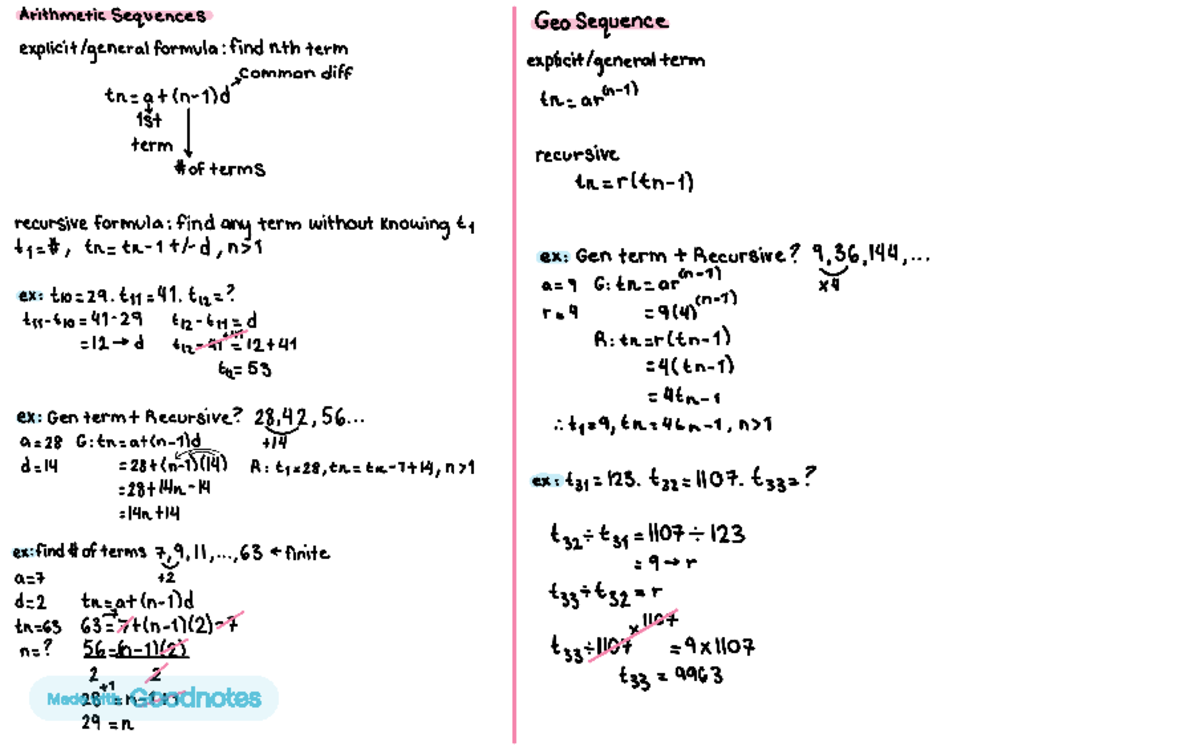 Arithmetic Sequences
explicit/general formula: find nth term
common diff
tn = a + (n-1)d
1st
term
# of terms
recursive formula: find any term without knowing t1
t1 = #, tn = tn-1 +/- d, n>1
ex: t10 = 29. t11 = 41. t12 = ?
t11 - t10 = 41 - 29 t12 - t11 = d
= 12 → d t12 - 41 = 12 + 41
= 53
ex: Gen term + Recursive? 28, 42, 56...
a = 28 G: tn = a+(n-1)d +14
d = 14 = 28+(n-1)(14) R: t1 = 28, tn = tn-1 + 14, n>1
= 28+14n-14
= 14n+14
ex: find # of terms 7, 9, 11, ..., 63 ← finite
a=7 +2
d=2 tn = a+(n-1)d
tn=63 63 = 7+(n-1)(2)-7
n=? 56 = (n-1)(2)
2 2
+1
28 = n-1+1
29 = n
Made with Goodnotes
Geo Sequence
explicit/general term
tn = ar(n-1)
recursive
tn = r(tn-1)
ex: Gen term + Recursive? 9, 36, 144, ...
a = 9 G: tn = ar(n-1) x4
r = 4 = 9(4)(n-1)
R: tn = r(tn-1)
= 4(tn-1)
= 4tn-1
∴ t1 = 9, tn = 4tn-1, n>1
ex: t31 = 123. t32 = 1107. t33 = ?
t32 ÷ t31 = 1107 ÷ 123
= 9 → r
t33 ÷ t32 = r
x 1107
t33 ÷ 1107 = 9 x 1107
t33 = 9963